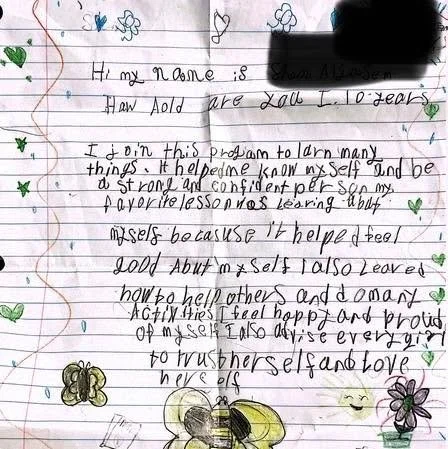 Hi my name is
Haw Aold are you I. 10 years
I join this program to larn many
things. It helpedme know my self and be
a strong and confident person my
favorite lesson was learing abut
myself becasuse it helped feel
good abut my self I also leaved
how to help others and do many
Activities I feel happy and proud
of my self I also advise every girl
to trust her self and love
her self